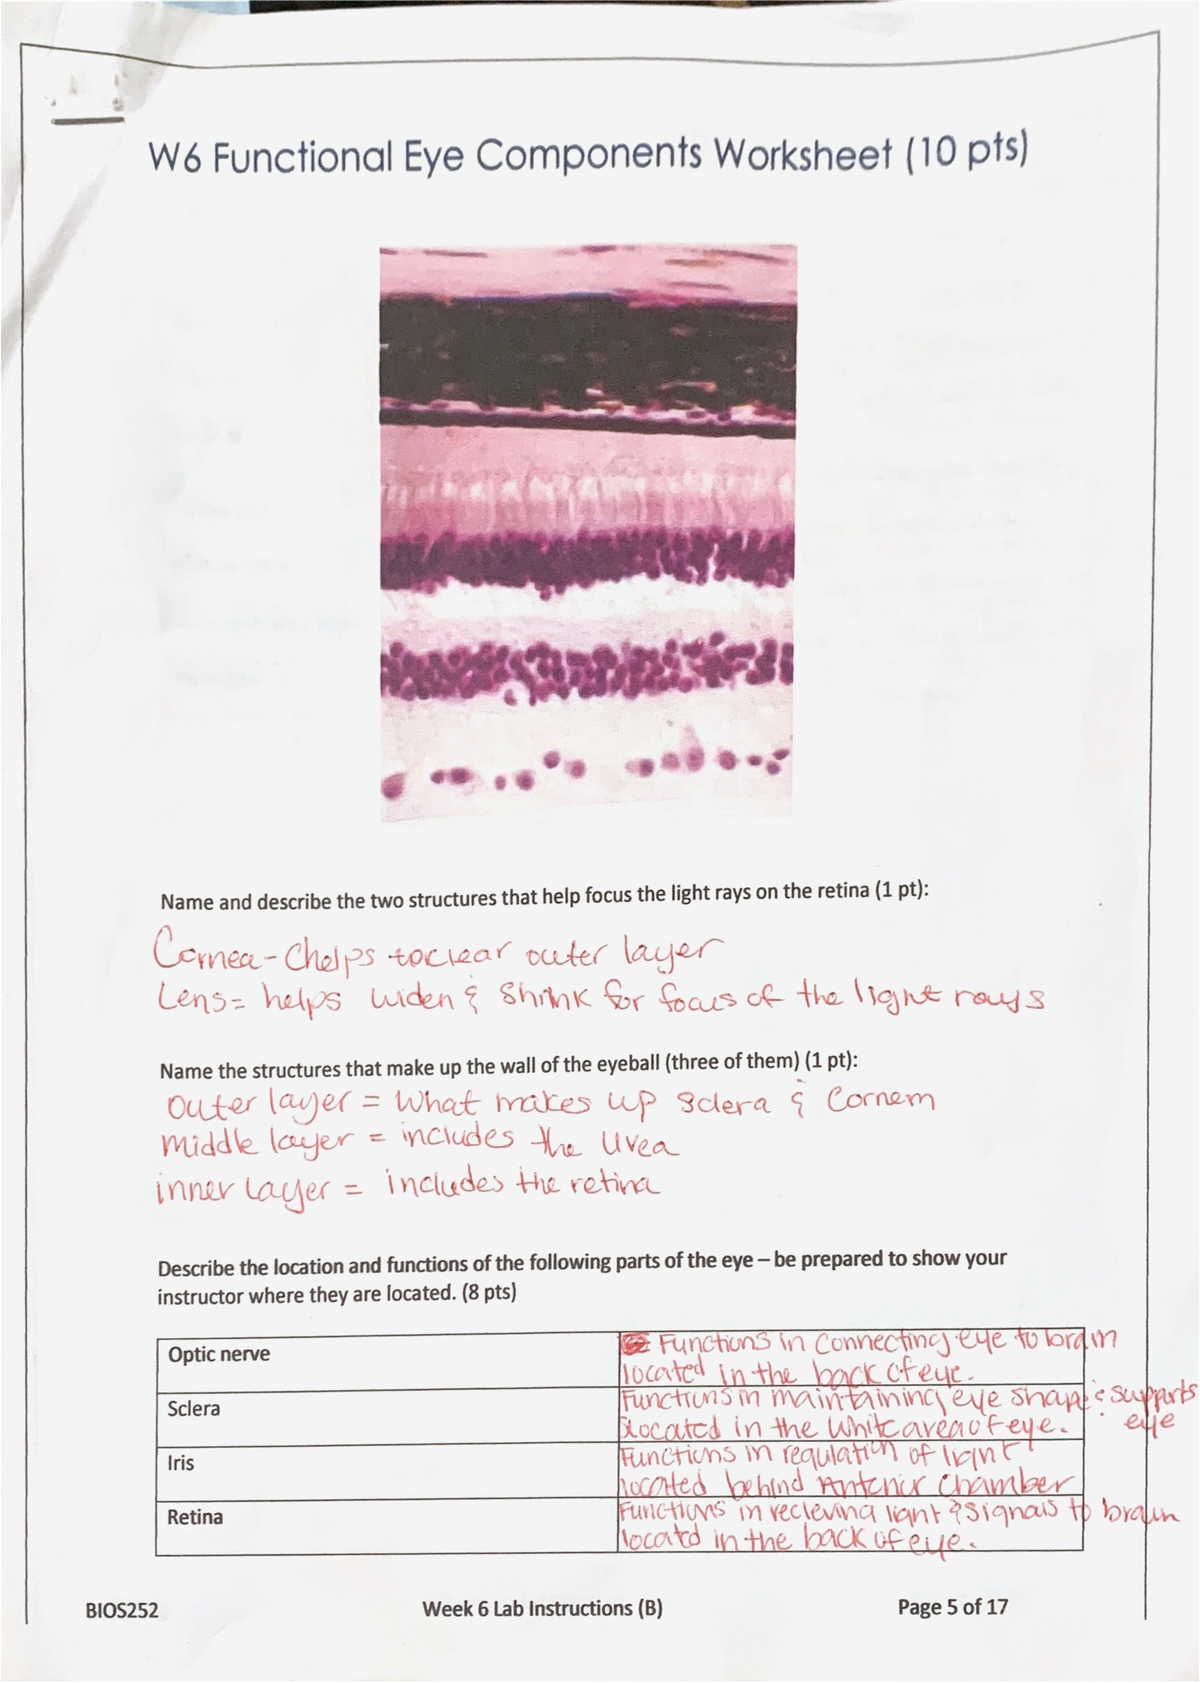 W6 Functional Eye Components Worksheet (10 pts)
Name and describe the two structures that help focus the light rays on the retina (1 pt):
Cornea - Chelps to clear outer layer
Lens = helps widen & shrink for focus of the light rays
Name the structures that make up the wall of the eyeball (three of them) (1 pt):
Outer layer = What makes up Sclera & Cornem
Middle layer = includes the Uvea
inner Layer = includes the retina
Describe the location and functions of the following parts of the eye – be prepared to show your
instructor where they are located. (8 pts)
Optic nerve
Functions in connecting eye to brain
located in the back of eye.
Sclera
Functions in maintaining eye shape & supports
eye
located in the White area of eye.
Iris
Functions in regulation of light
located behind Antenir Chamber
Retina
Functions in recieving light & signals to brain
locatd in the back of eye.
BIOS252 Week 6 Lab Instructions (B) Page 5 of 17